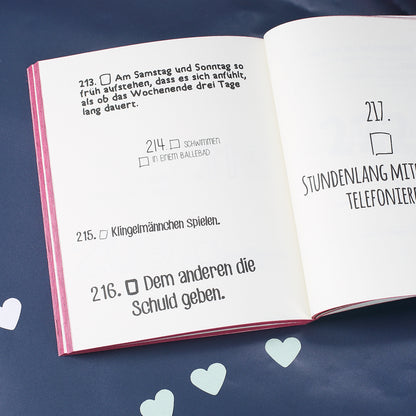 213. Am Samstag und Sonntag so
früh aufstehen, dass es sich anfühlt,
als ob das Wochenende drei Tage
lang dauert.
214. SCHWIMMEN
IN EINEM BÄLLEBAD
215. Klingelmännchen Spielen.
216. Dem anderen die
Schuld geben.
217.
STUNDENLANG